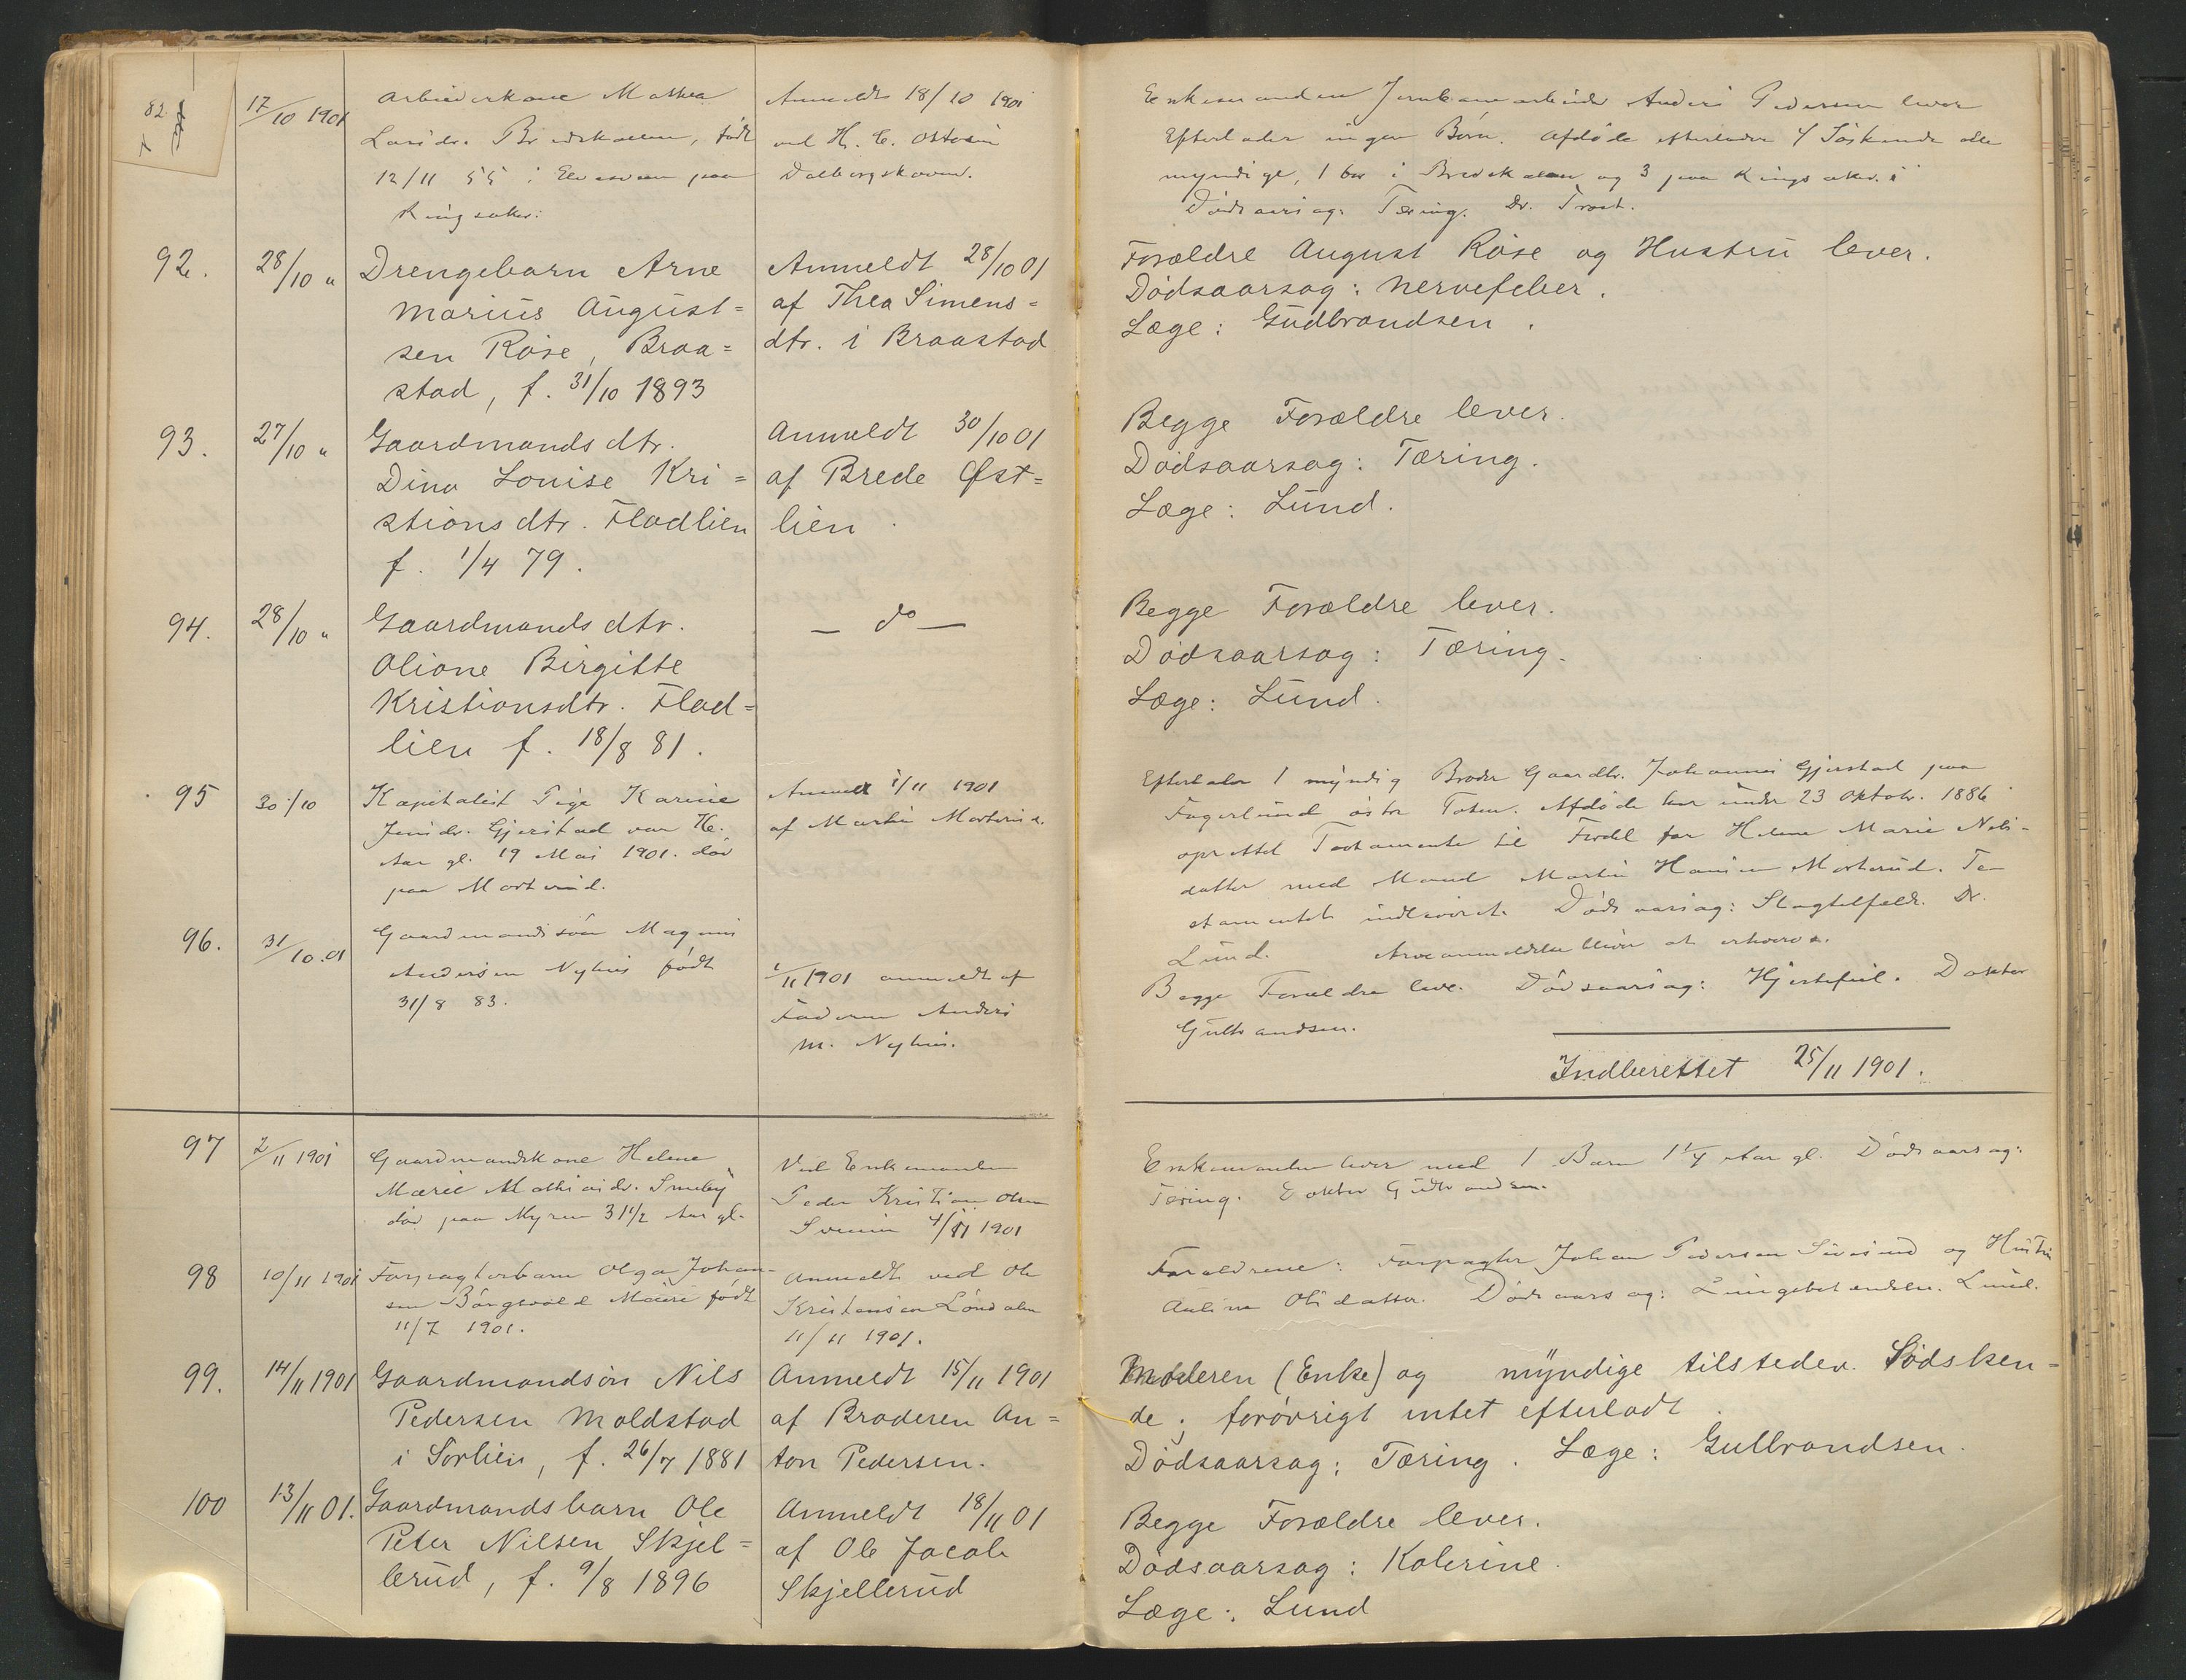 82
17/10 1901
Arbeiderkone Mathea
Larsdr. Bredskallen, født
12/11 55 i paa
Ringsaker.
Anmeldt 18/10 1901
ved H. C. Ottosen
Dalborgskoven.
Enkemanden Jernbanearbeider Anders Pedersen lever
Efterlader ingen Børn. Afdøde efterlader 4 Søskende alle
myndige, 1 bor i og 3 paa Ringsaker.
Dødsaarsag: Tæring. Dr.
92.
28/10 "
Drengebarn Arne
Marius August=
sen Röise, Braa=
stad, f. 31/10 1893
Anmeldt 28/10 01
af Thea Simens=
dtr. i Braastad
Forældre August Röise og Hustru lever.
Dødsaarsag: Nervefeber.
Læge: Gudbrandsen.
93.
27/10 "
Gaardmandsdtr.
Dina Louise Kri=
stiansdtr. Fladlien
f. 1/4 79.
Anmeldt 30/10 01
af Brede Øst=
lien.
Begge Forældre lever.
Dødsaarsag: Tæring.
Læge: Lund.
94.
28/10 "
Gaardmandsdtr.
Oliane Birgitte
Kristiansdtr. Flad=
lien f. 18/8 81.
— do —
Begge Forældre lever.
Dødsaarsag: Tæring.
Læge: Lund.
95
30/10
Kapitalist Pige Karine
Jensdr. Gjerstad var 76
Aar gl. 19 Mai 1901. død
paa Morterud.
Anmeldt 1/11 1901
af Martin Morterud.
Efterlader 1 myndig Broder Gaardbr. Johannes Gjerstad paa
Fagerlund østre Toten. Afdøde har under 23 Oktobr. 1886
oprettet Testamente til Fordel for Helene Marie Nils-
datter med Mand Martin Hansen Morterud. Te-
stamentet indleveret. Dødsaarsag: Slagtilfælde. Dr.
Lund. Arveanmeldelse bliver at erhverve.
96.
31/10.01
Gaardmandssøn Magnus
Andersen Nyhus født
31/8 83.
1/11 1901 anmeldt af
Faderen Anders
M. Nyhus.
Begge Forældre lever. Dødsaarsag: Hjertefeil. Doktor
Gulbrandsen.
Indberettet 25/11 1901.
97
2/11 1901
Gaardmandskone Helene
Marie Mathiasdr. Smeby
død paa Myren 31 1/2 Aar gl.
Ved Enkemanden
Peder Kristian Olsen
4/11 1901
Enkemanden lever med 1 Barn 1 1/4 Aar gl. Dødsaarsag:
Tæring. Doktor Gudbrandsen.
98
10/11 1901
Forpagterbarn Olga Johan-
sen Borgvold født
11/7 1901.
Anmeldt ved Ole
Kristensen
11/11 1901.
Forældrene: Forpagter Johan Pedersen og Hustru
Auline Olsdatter. Dødsaarsag: Lungebetændelse. Lund.
99.
14/11 1901
Gaardmandsøn Nils
Pedersen Moldstad
i Sorlien, f. 26/7 1881
Anmeldt 15/11 1901
af Broderen An=
ton Pedersen.
Moderen (Enke) og myndige tilsteder. Sødsken=
de; forøvrigt intet efterladt.
Dødsaarsag: Tæring. Læge: Gulbrandsen.
100
13/11 01.
Gaardmandsbarn Ole
Peter Nilsen Skjel=
lerud, f. 9/8 1896
Anmeldt 18/11 01
af Ole Jacob
Skjellerud
Begge Forældre lever.
Dødsaarsag: Kolerine.
Læge: Lund